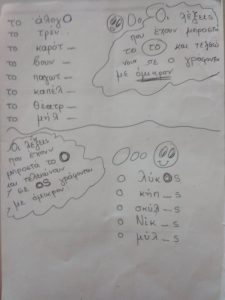 το άλογο
το τρεν_
το καροτ_
το βουν_
το παγωτ_
το καπέλ_
το θέατρ_
το μήλ_
Οο, Οι λέξεις
που έχουν μπροστά
το το και τελειώ
νουν σε ο γράφονται
με όμικρον
Οι λέξεις
που έχουν
μπροστά το Ο
και τελειώνουν
σε ος γράφονται
με όμικρον
Οοο
ο λύκος
ο κήπ_ς
ο σκύλ_ς
ο Νίκ_ς
ο μύλ_ς